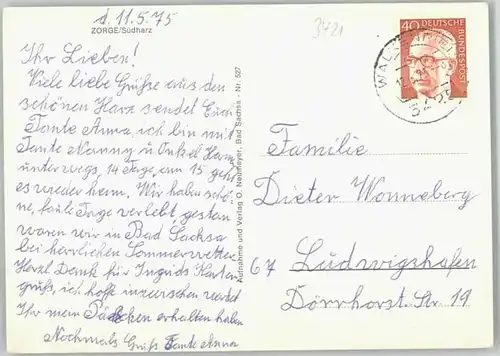 d. 11.5.75
ZORGE/Südharz
3421
Ihr Lieben!
Viele liebe Grüsse aus dem
schönen Harz sendet Euch
Tante Anna, ich bin mit
Tante Nanny u Onkel Harm
unterwegs, 14 Tage, am 15 geht
es wieder heim. Wir haben schö-
ne, faule Tage verlebt, gestern
waren wir in Bad Sachsa
bei herrlichen Sommerwetter.
Herzl Dank für Ingrids Karten-
gruß, ich hoffe inzwischen
Ihr mein Päckchen erhalten haben
Nochmals Gruß Tante Anna
Aufnahme und Verlag O. Neumeyer, Bad Sachsa · Nr. 527
40 DEUTSCHE
BUNDESPOST
WALK
Familie
Dieter Wonneberg
67 Ludwigshafen
Dörrhorst. Str. 19